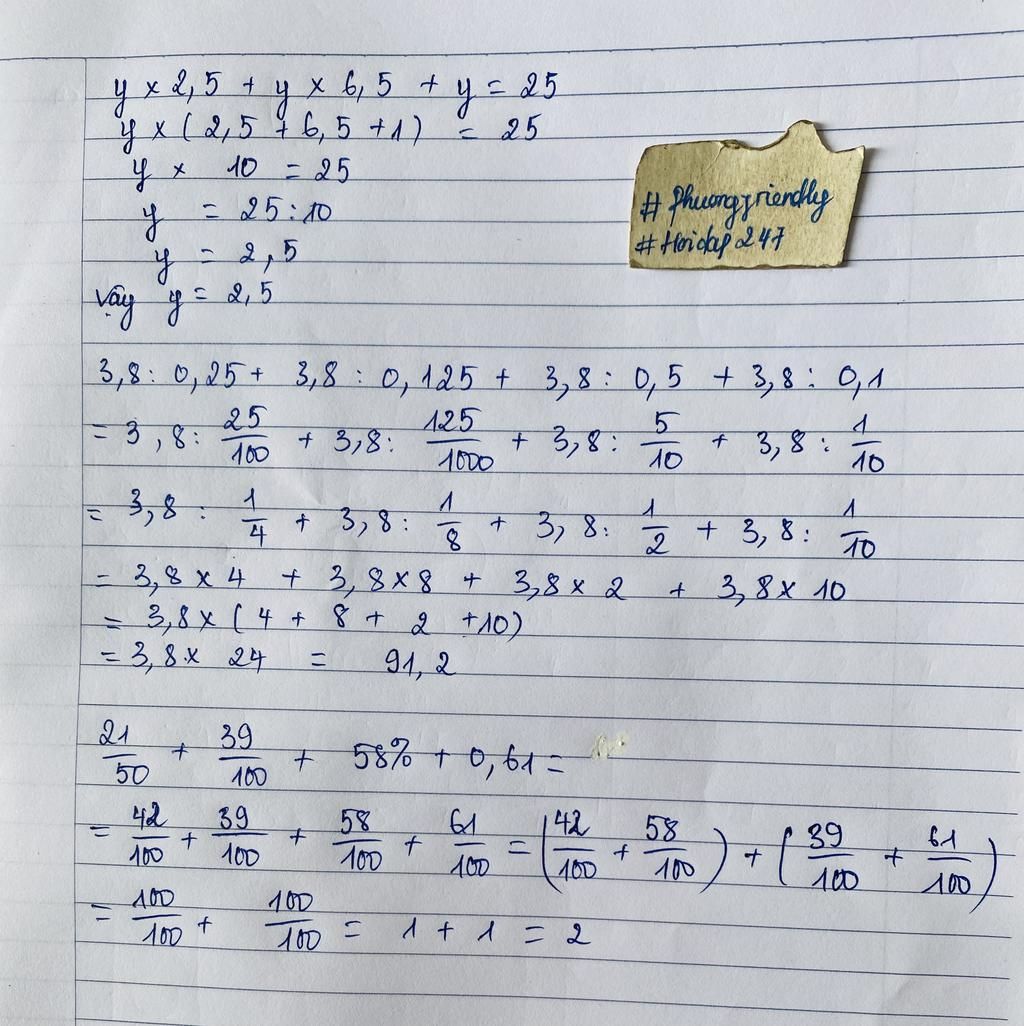 y × 2,5 + y × 6,5 + y = 25
y × ( 2,5 + 6,5 + 1 ) = 25
y × 10 = 25
y = 25 : 10
y = 2,5
Vậy y = 2,5
# Phuongfriendly
# Hoidap247
3,8 : 0,25 + 3,8 : 0,125 + 3,8 : 0,5 + 3,8 : 0,1
= 3,8 : 25/100 + 3,8 : 125/1000 + 3,8 : 5/10 + 3,8 : 1/10
= 3,8 : 1/4 + 3,8 : 1/8 + 3,8 : 1/2 + 3,8 : 1/10
= 3,8 × 4 + 3,8 × 8 + 3,8 × 2 + 3,8 × 10
= 3,8 × ( 4 + 8 + 2 + 10 )
= 3,8 × 24 = 91,2
21/50 + 39/100 + 58% + 0,61 =
= 42/100 + 39/100 + 58/100 + 61/100 = ( 42/100 + 58/100 ) + ( 39/100 + 61/100 )
= 100/100 + 100/100 = 1 + 1 = 2